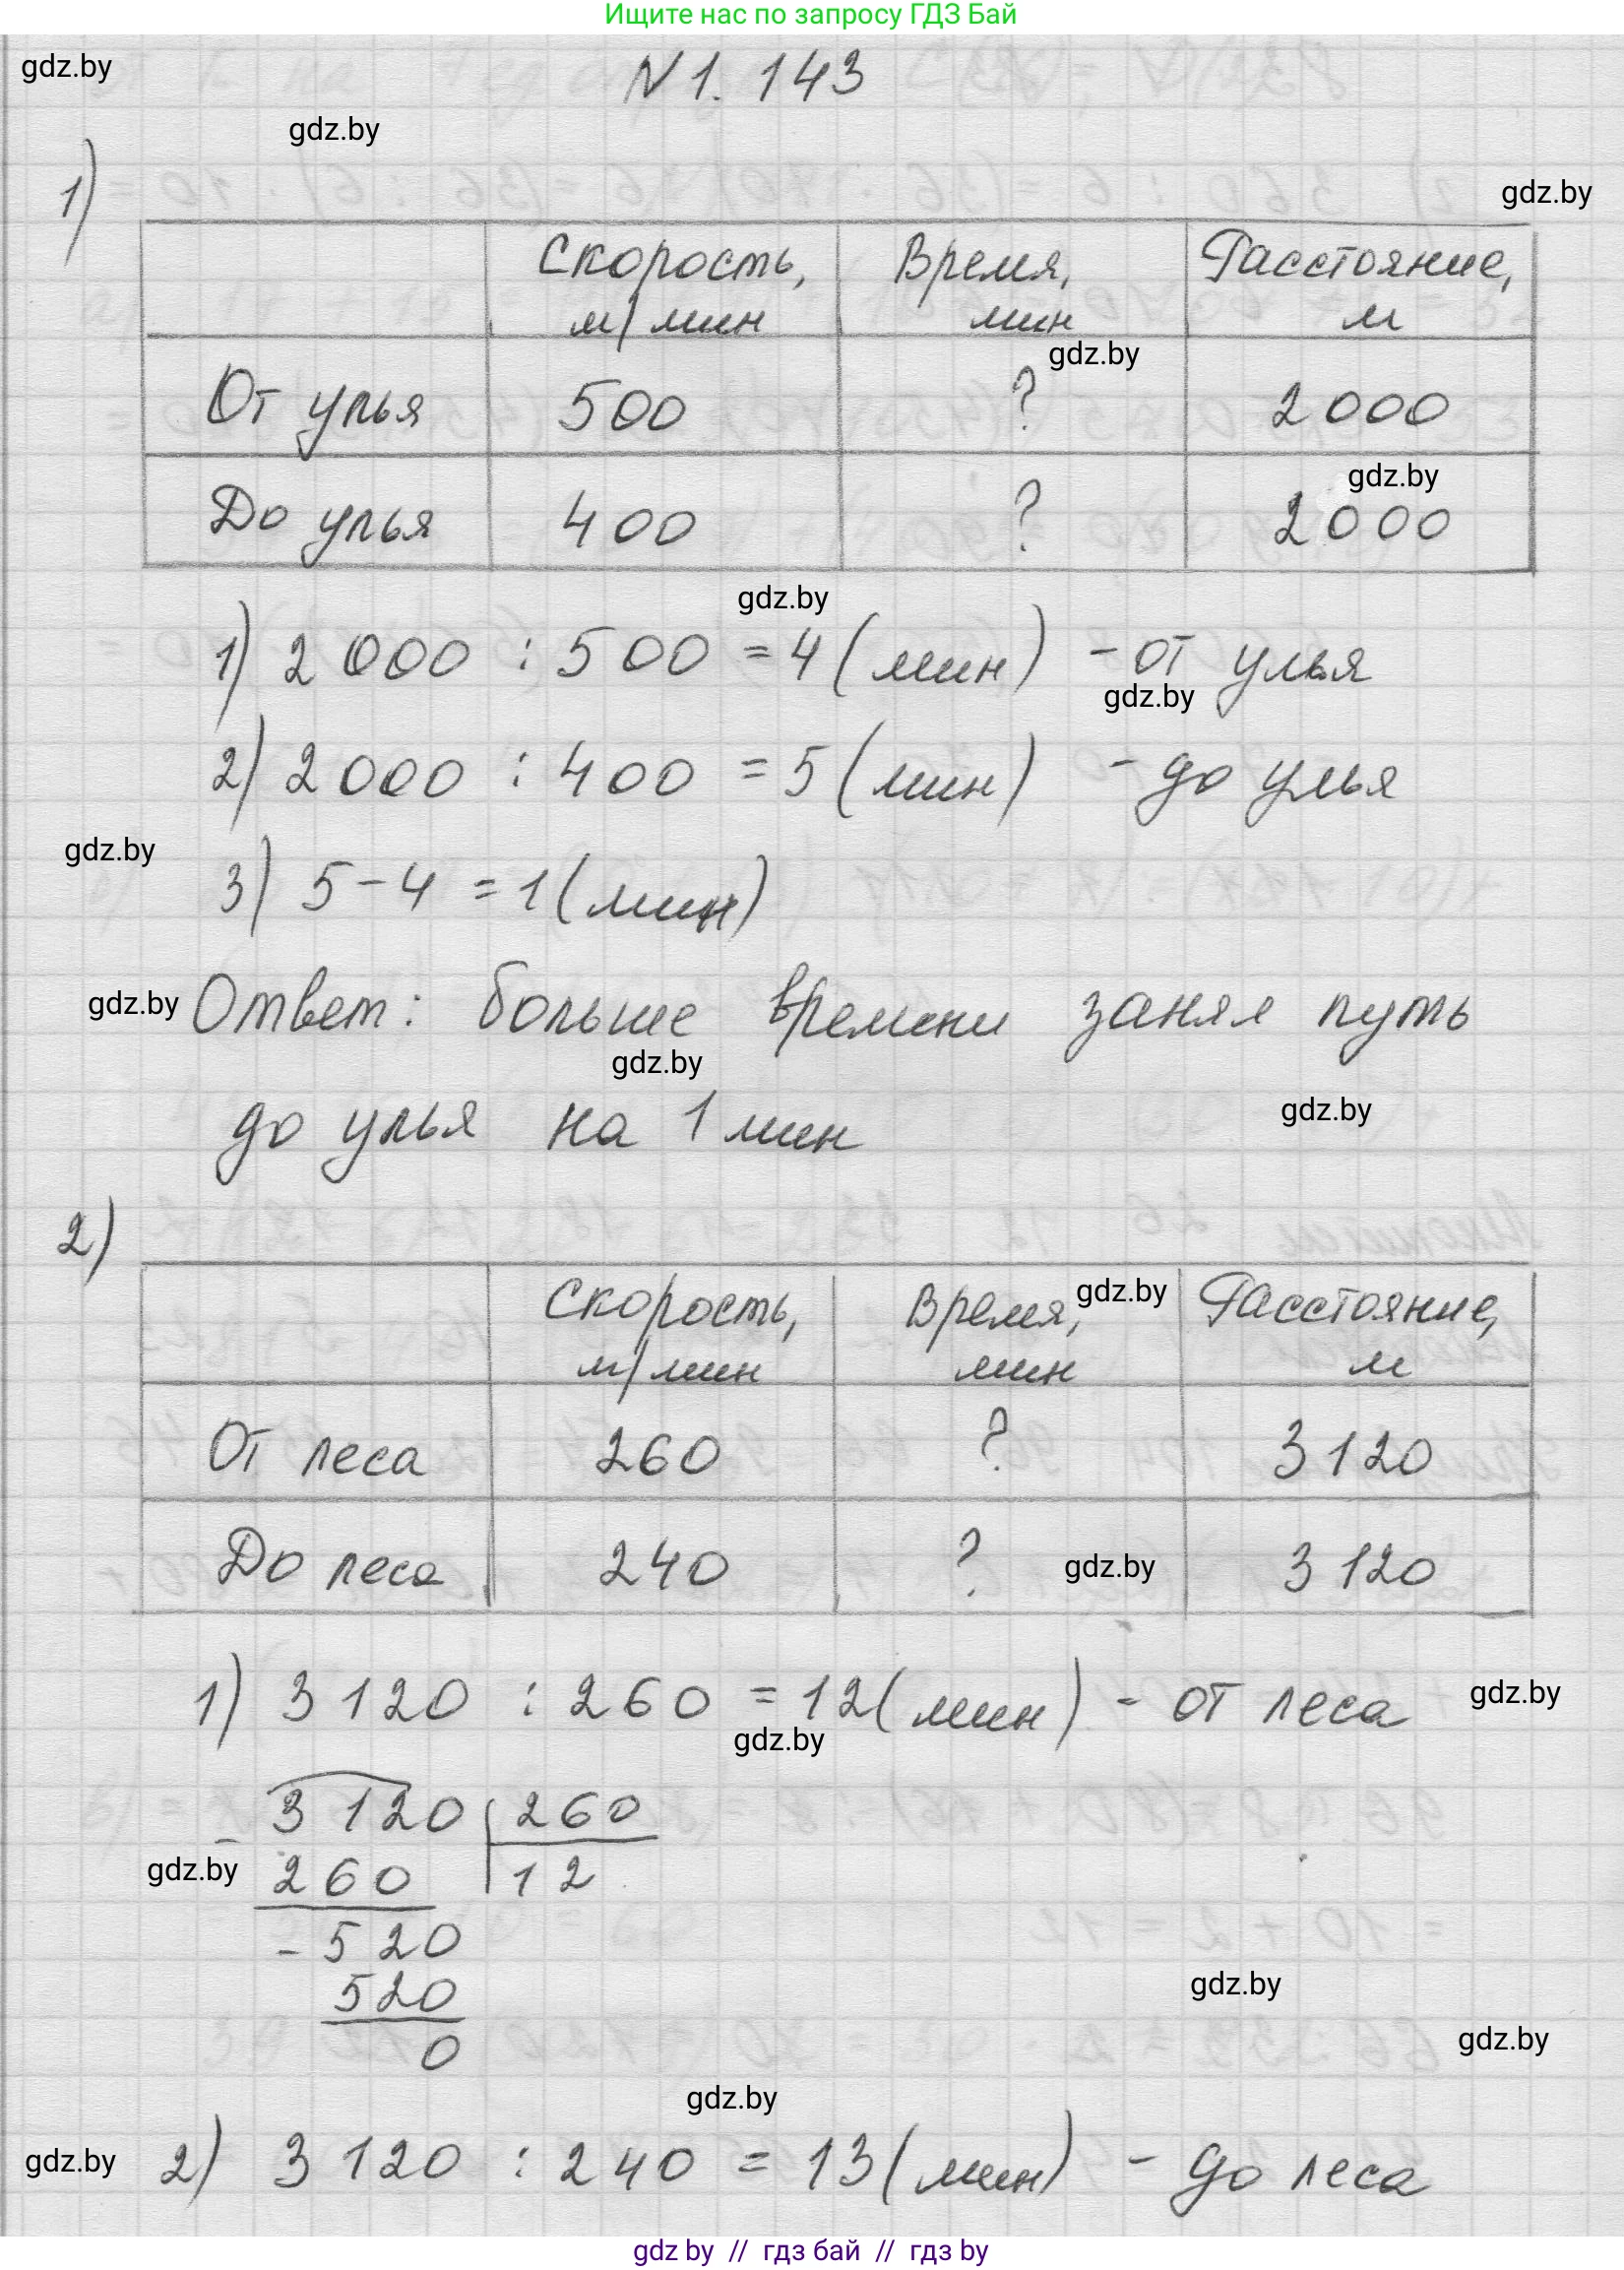 Ищите нас по запросу ГДЗ Бай
gdz.by
N 1. 143
gdz.by
gdz.by
1)
Скорость, м/мин | Время, мин | Расстояние, м
gdz.by
От улья 500 ? 2000
gdz.by
До улья 400 ? 2000
gdz.by
1) 2000 : 500 = 4 (мин) - от улья
gdz.by
2) 2000 : 400 = 5 (мин) - до улья
gdz.by
3) 5 - 4 = 1 (мин)
gdz.by
Ответ: больше времени занял путь
gdz.by
до улья на 1 мин
gdz.by
2)
Скорость, м/мин | Время, мин | Расстояние, м
gdz.by
От леса 260 ? 3120
До леса 240 ? 3120
gdz.by
1) 3120 : 260 = 12 (мин) - от леса
gdz.by
gdz.by
- 3120 | 260
260 | 12
gdz.by
- 520
520
0
gdz.by
gdz.by
gdz.by
2) 3120 : 240 = 13 (мин) - до леса
gdz.by
gdz by // гдз бай // гдз by